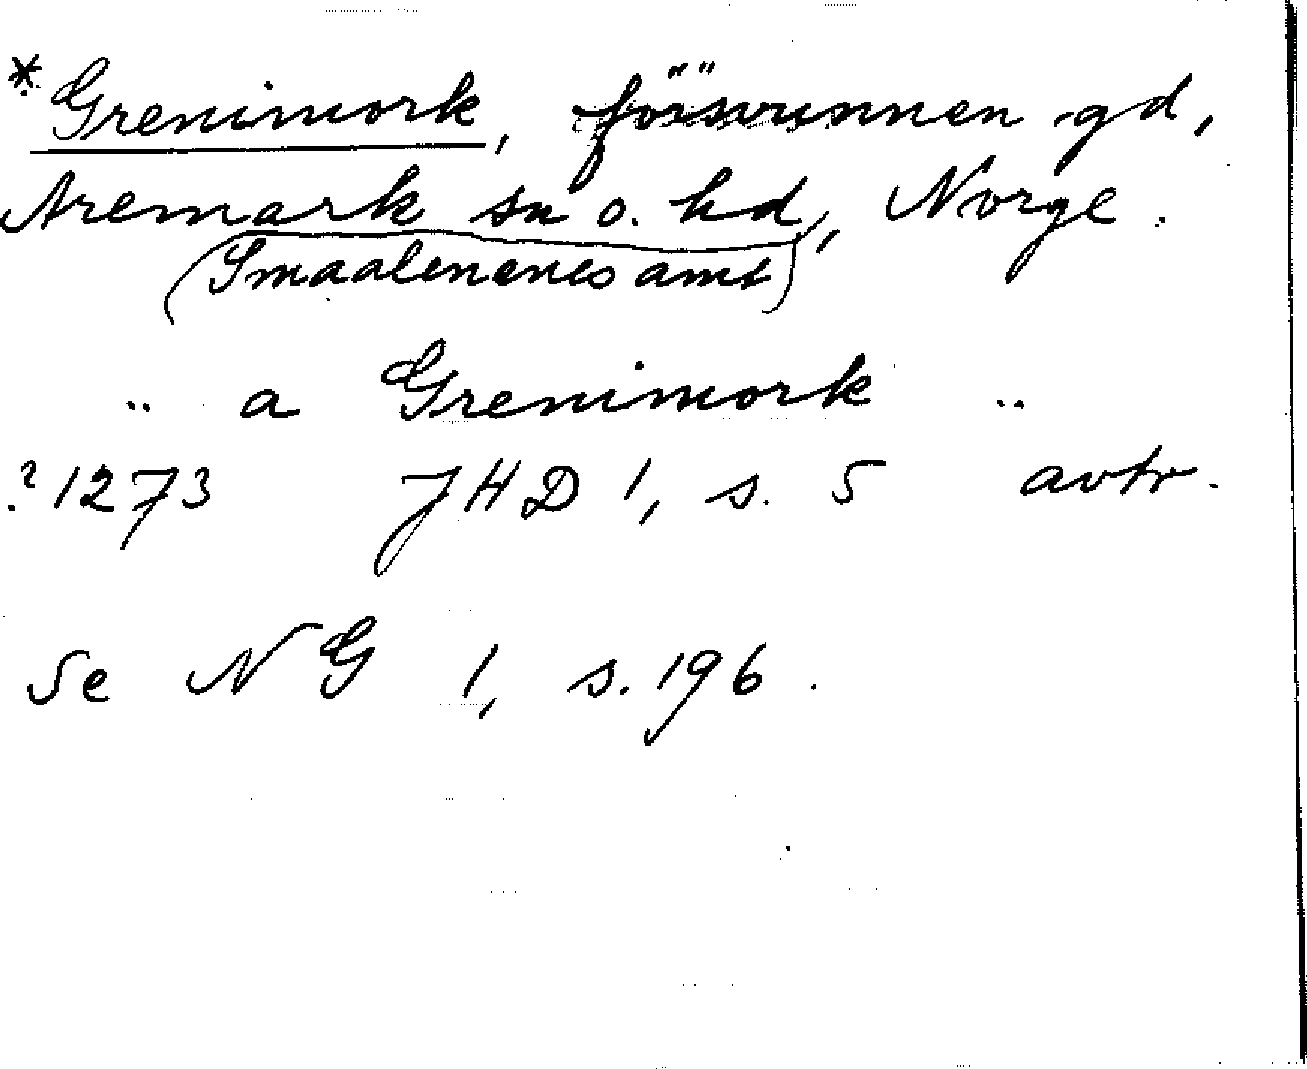 *Grenimork, försvunnen gd,
Aremark sn o. hd, Norge.
(Smaalenenes amt)
" a Grenimork "
? 1273 JHD 1, s. 5 avtr.
Se NG 1, s. 196.